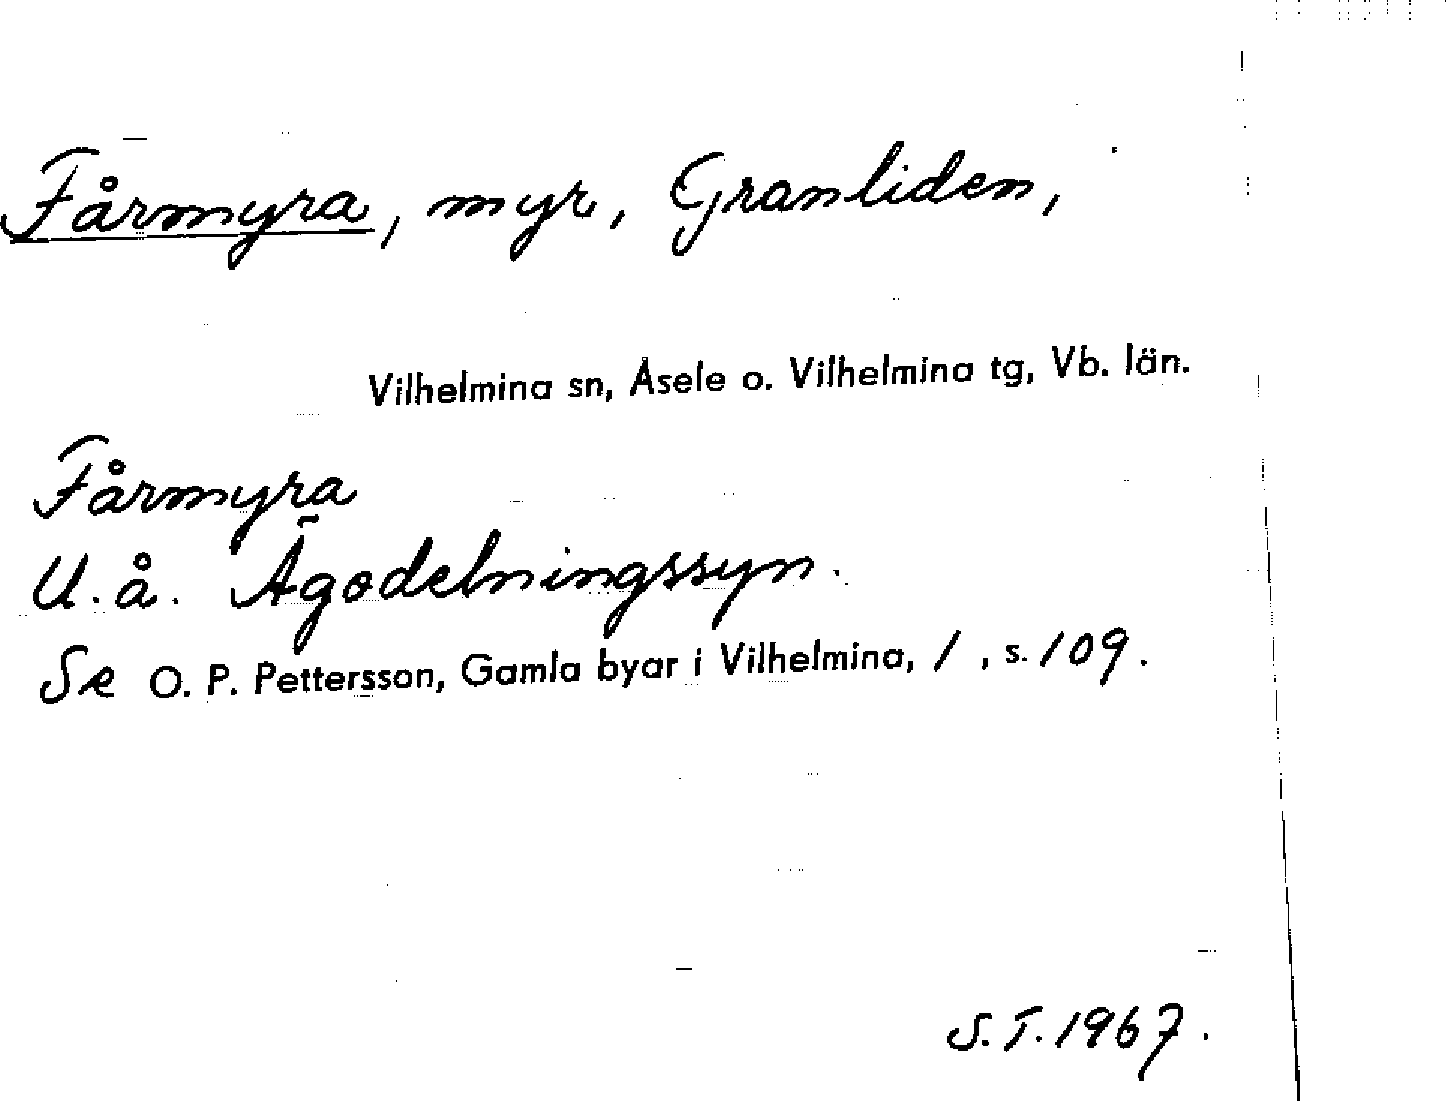 Fårmyra, myr, Granliden,
Vilhelmina sn, Åsele o. Vilhelmina tg, Vb. län.
Fårmyra
U.å. Ägodelningssyn.
Se O. P. Pettersson, Gamla byar i Vilhelmina, 1, s. 109.
S.T. 1967.